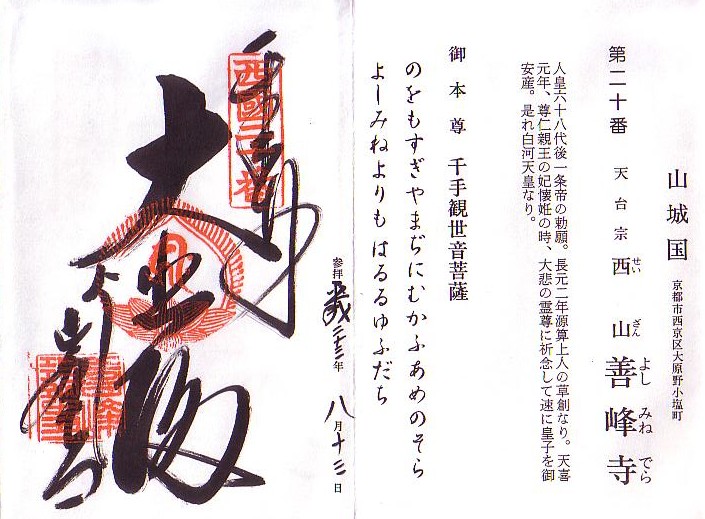 山城国 京都市西京区大原野小塩町
第二十番 天台宗 西山 善峰寺
せい ざん よし みね でら
人皇六十八代後一条帝の勅願。長元二年源算上人の草創なり。天喜
元年、尊仁親王の妃懐妊の時、大悲の霊尊に祈念して速に皇子を御
安産。是れ白河天皇なり。
御本尊 千手観世音菩薩
のをもすぎやまぢにむかふあめのそら
よしみねよりもはるるゆふだち
参拝 平成二十三年 八月十三日
奉拝
西國二十番
大悲閣
善峯寺